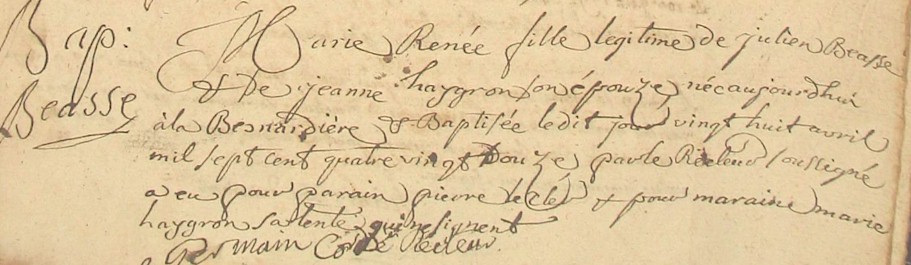 Bap: Marie Renée fille legitime de julien Beasse
Beasse & De jeanne haygron son épouze née aujourdhui
à la Besnardière & Baptisée ledit jour vingt huit avril
mil sept cent quatre vingt Douze par le Recteur soussigné
a eu pour parain pierre le clèr & pour maraine marie
haygron sa tente qui ne signent
Germain Recteur.